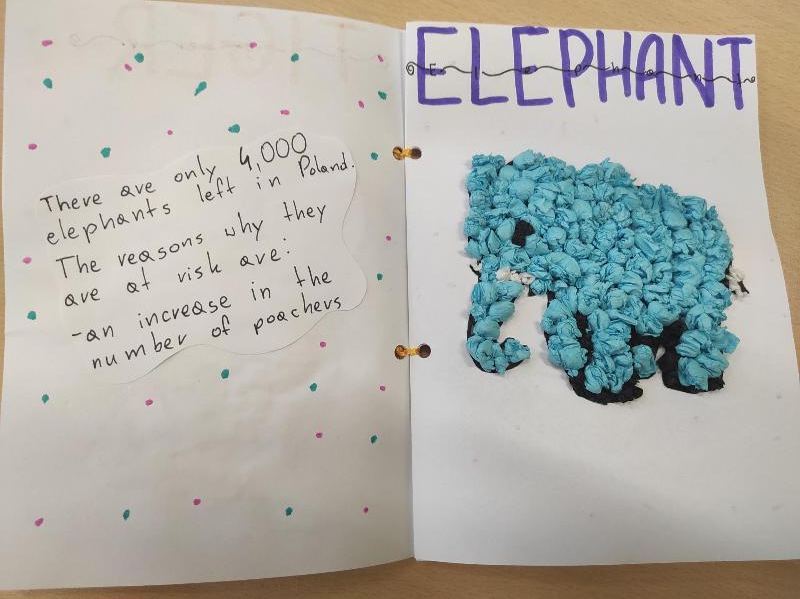 There are only 4,000
elephants left in Poland.
The reasons why they
are at risk are:
-an increase in the
number of poachers
ELEPHANT
Elephant